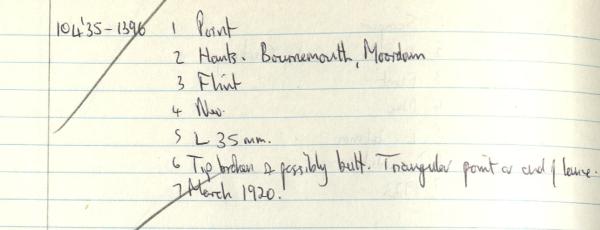 104'35-1396 1 Point
2 Hants. Bournemouth, Moordown
3 Flint
4 Neo.
5 L 35 mm.
6 Tip broken & possibly butt. Triangular point or end of
7 March 1920.